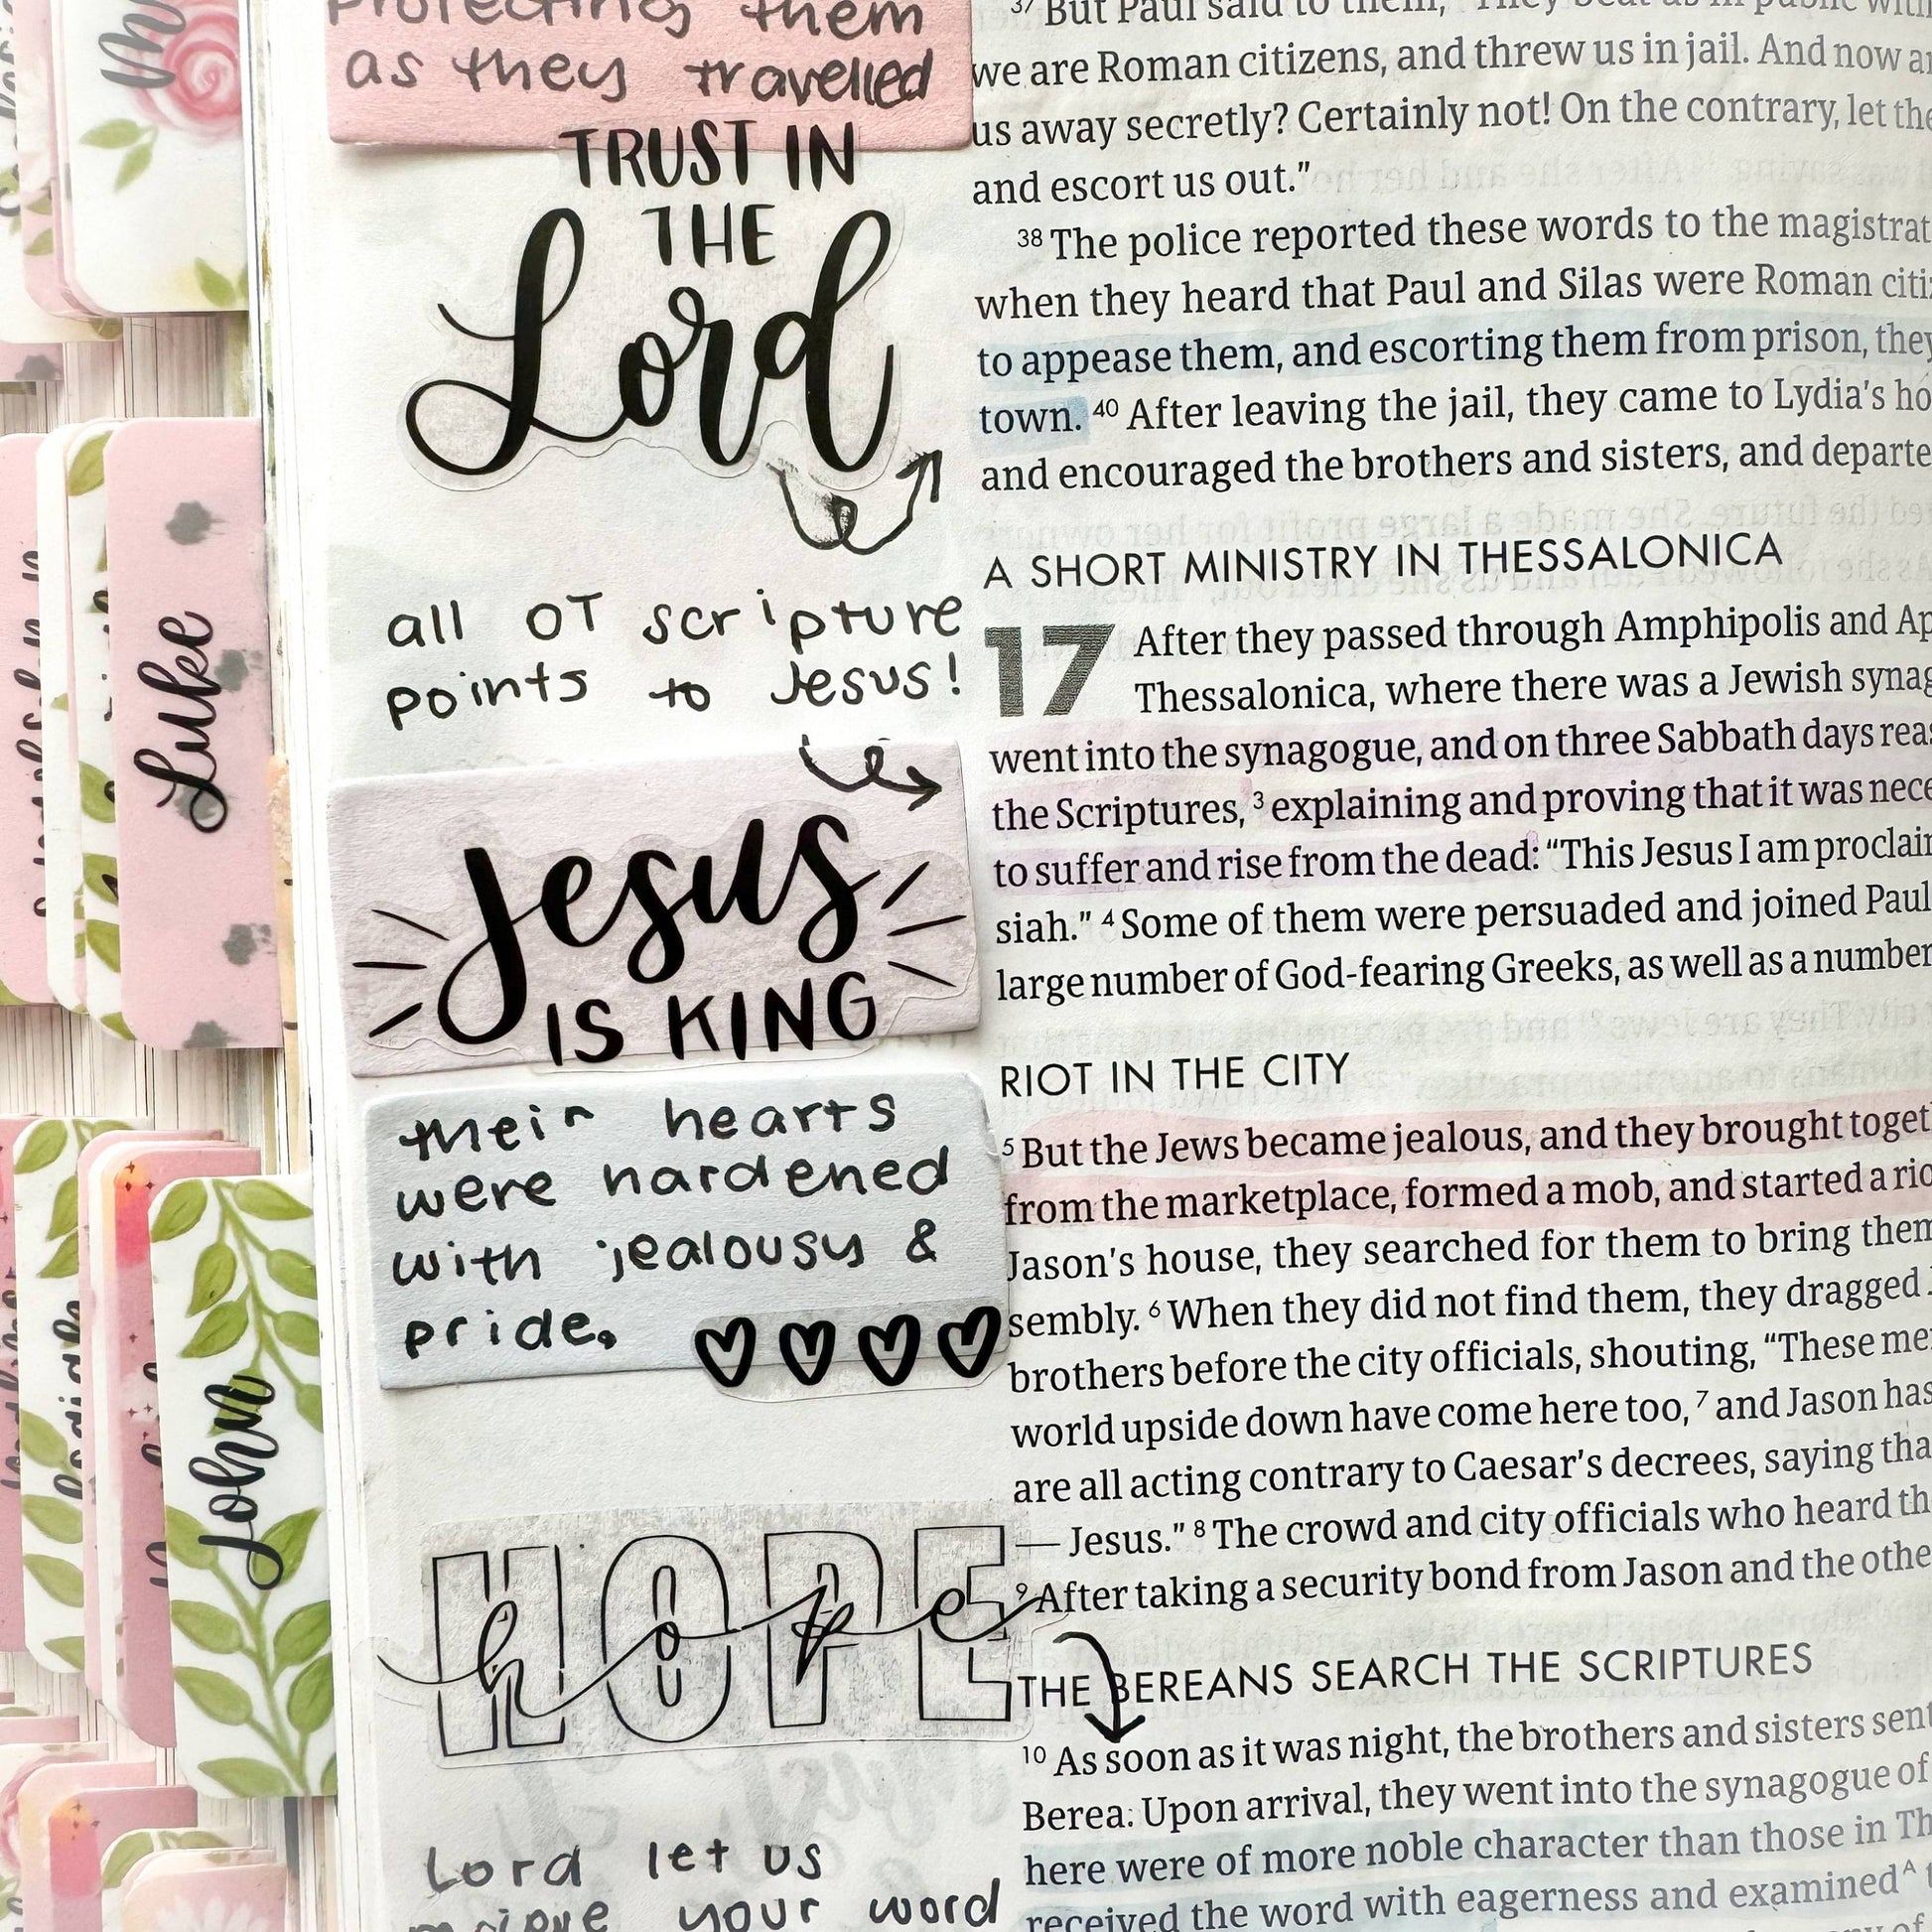 Protecting them
as they travelled
TRUST IN
THE
Lord
all OT scripture
points to Jesus!
Jesus
IS KING
their hearts
were hardened
with jealousy &
pride.
HOPE
hope
Lord let us
your word
Luke
John
37 But Paul said to them, "They beat us in public
we are Roman citizens, and threw us in jail. And now
us away secretly? Certainly not! On the contrary, let
and escort us out."
38 The police reported these words to the
when they heard that Paul and Silas were Roman
to appease them, and escorting them from prison,
town. 40 After leaving the jail, they came to Lydia's
and encouraged the brothers and sisters, and
A SHORT MINISTRY IN THESSALONICA
17 After they passed through Amphipolis and
Thessalonica, where there was a Jewish
went into the synagogue, and on three Sabbath days
the Scriptures, 3 explaining and proving that it was
to suffer and rise from the dead: "This Jesus I am
siah." 4 Some of them were persuaded and joined Paul
large number of God-fearing Greeks, as well as a number
RIOT IN THE CITY
5 But the Jews became jealous, and they brought
from the marketplace, formed a mob, and started a
Jason's house, they searched for them to bring
sembly. 6 When they did not find them, they dragged
brothers before the city officials, shouting, "These
world upside down have come here too, 7 and Jason has
are all acting contrary to Caesar's decrees, saying
— Jesus." 8 The crowd and city officials who heard
9 After taking a security bond from Jason and the
THE BEREANS SEARCH THE SCRIPTURES
10 As soon as it was night, the brothers and sisters sent
Berea. Upon arrival, they went into the synagogue of
here were of more noble character than those in
received the word with eagerness and examined A